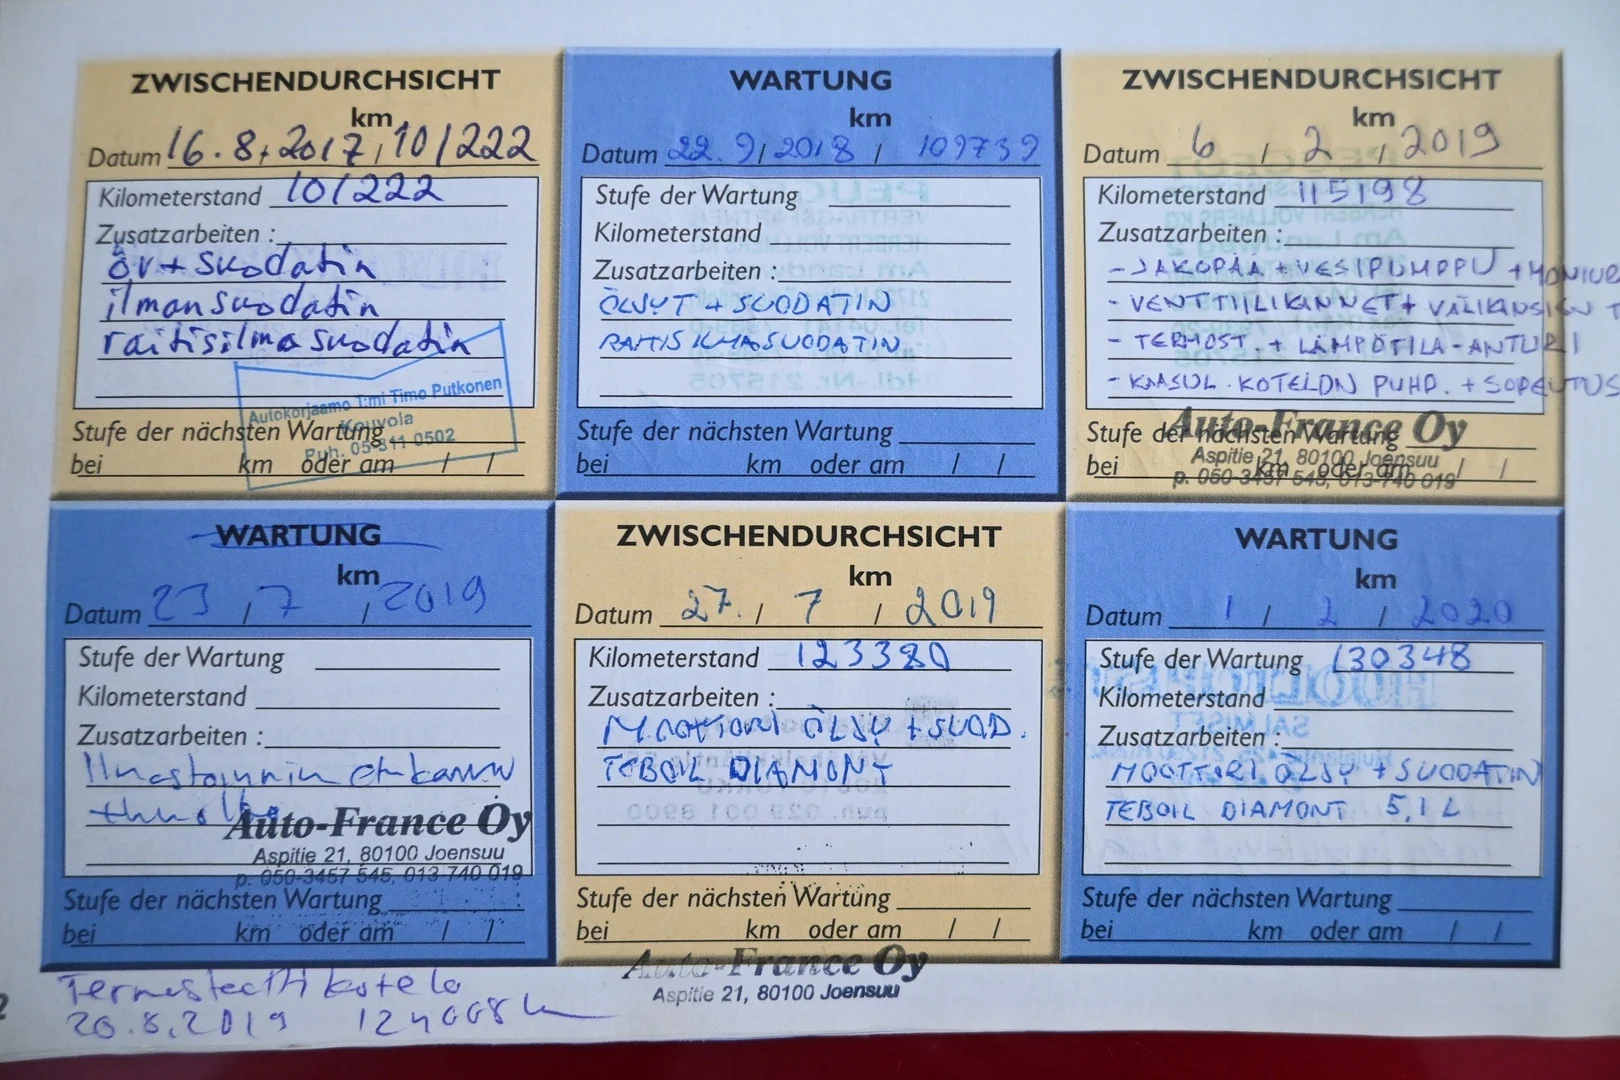 ZWISCHENDURCHSICHT
km
Datum 16.8.2017, 101222
Kilometerstand 101222
Zusatzarbeiten :
öv+suodatin
ilmansuodatin
raitisilmasuodatin
Autokorjaamo T:mi Timo Putkonen
Kouvola
Puh. 05-311 0502
Stufe der nächsten Wartung
bei km oder am / /
WARTUNG
km
Datum 22. 9/ 2018 / 109739
Stufe der Wartung
Kilometerstand
Zusatzarbeiten :
ÖLJYT + SUODATIN
RAITIS ILMASUODATIN
Stufe der nächsten Wartung
bei km oder am / /
ZWISCHENDURCHSICHT
km
Datum 6 / 2 / 2019
Kilometerstand 115198
Zusatzarbeiten :
- JAKOPÄÄ + VESIPUMPPU + MONIUR
- VENTTIILIKANNET + VÄLIKANSIEN T
- TERMOST. + LÄMPÖTILA-ANTURI
- KAASUL. KOTELON PUHD. +
Auto-France Oy
Stufe der nächsten Wartung
Aspitie 21, 80100 Joensuu
bei km oder am / /
p. 050-3457 545, 013-740 019
WARTUNG
km
Datum 23 / 7 / 2019
Stufe der Wartung
Kilometerstand
Zusatzarbeiten :
Ilmastoinnin
Auto-France Oy
Aspitie 21, 80100 Joensuu
p. 050-3457 545, 013 740 019
Stufe der nächsten Wartung
bei km oder am / /
ZWISCHENDURCHSICHT
km
Datum 27. / 7 / 2019
Kilometerstand 123380
Zusatzarbeiten :
MOOTTORI ÖLJY + SUOD.
TEBOIL DIAMONT
Stufe der nächsten Wartung
bei km oder am / /
Auto-France Oy
Aspitie 21, 80100 Joensuu
WARTUNG
km
Datum 1 / 2 / 2020
Stufe der Wartung 130348
Kilometerstand
Zusatzarbeiten :
MOOTTORI ÖLJY + SUODATIN
TEBOIL DIAMONT 5,1 L
Stufe der nächsten Wartung
bei km oder am / /
Termostaatti kotelo
20.8.2019 124008 k
2